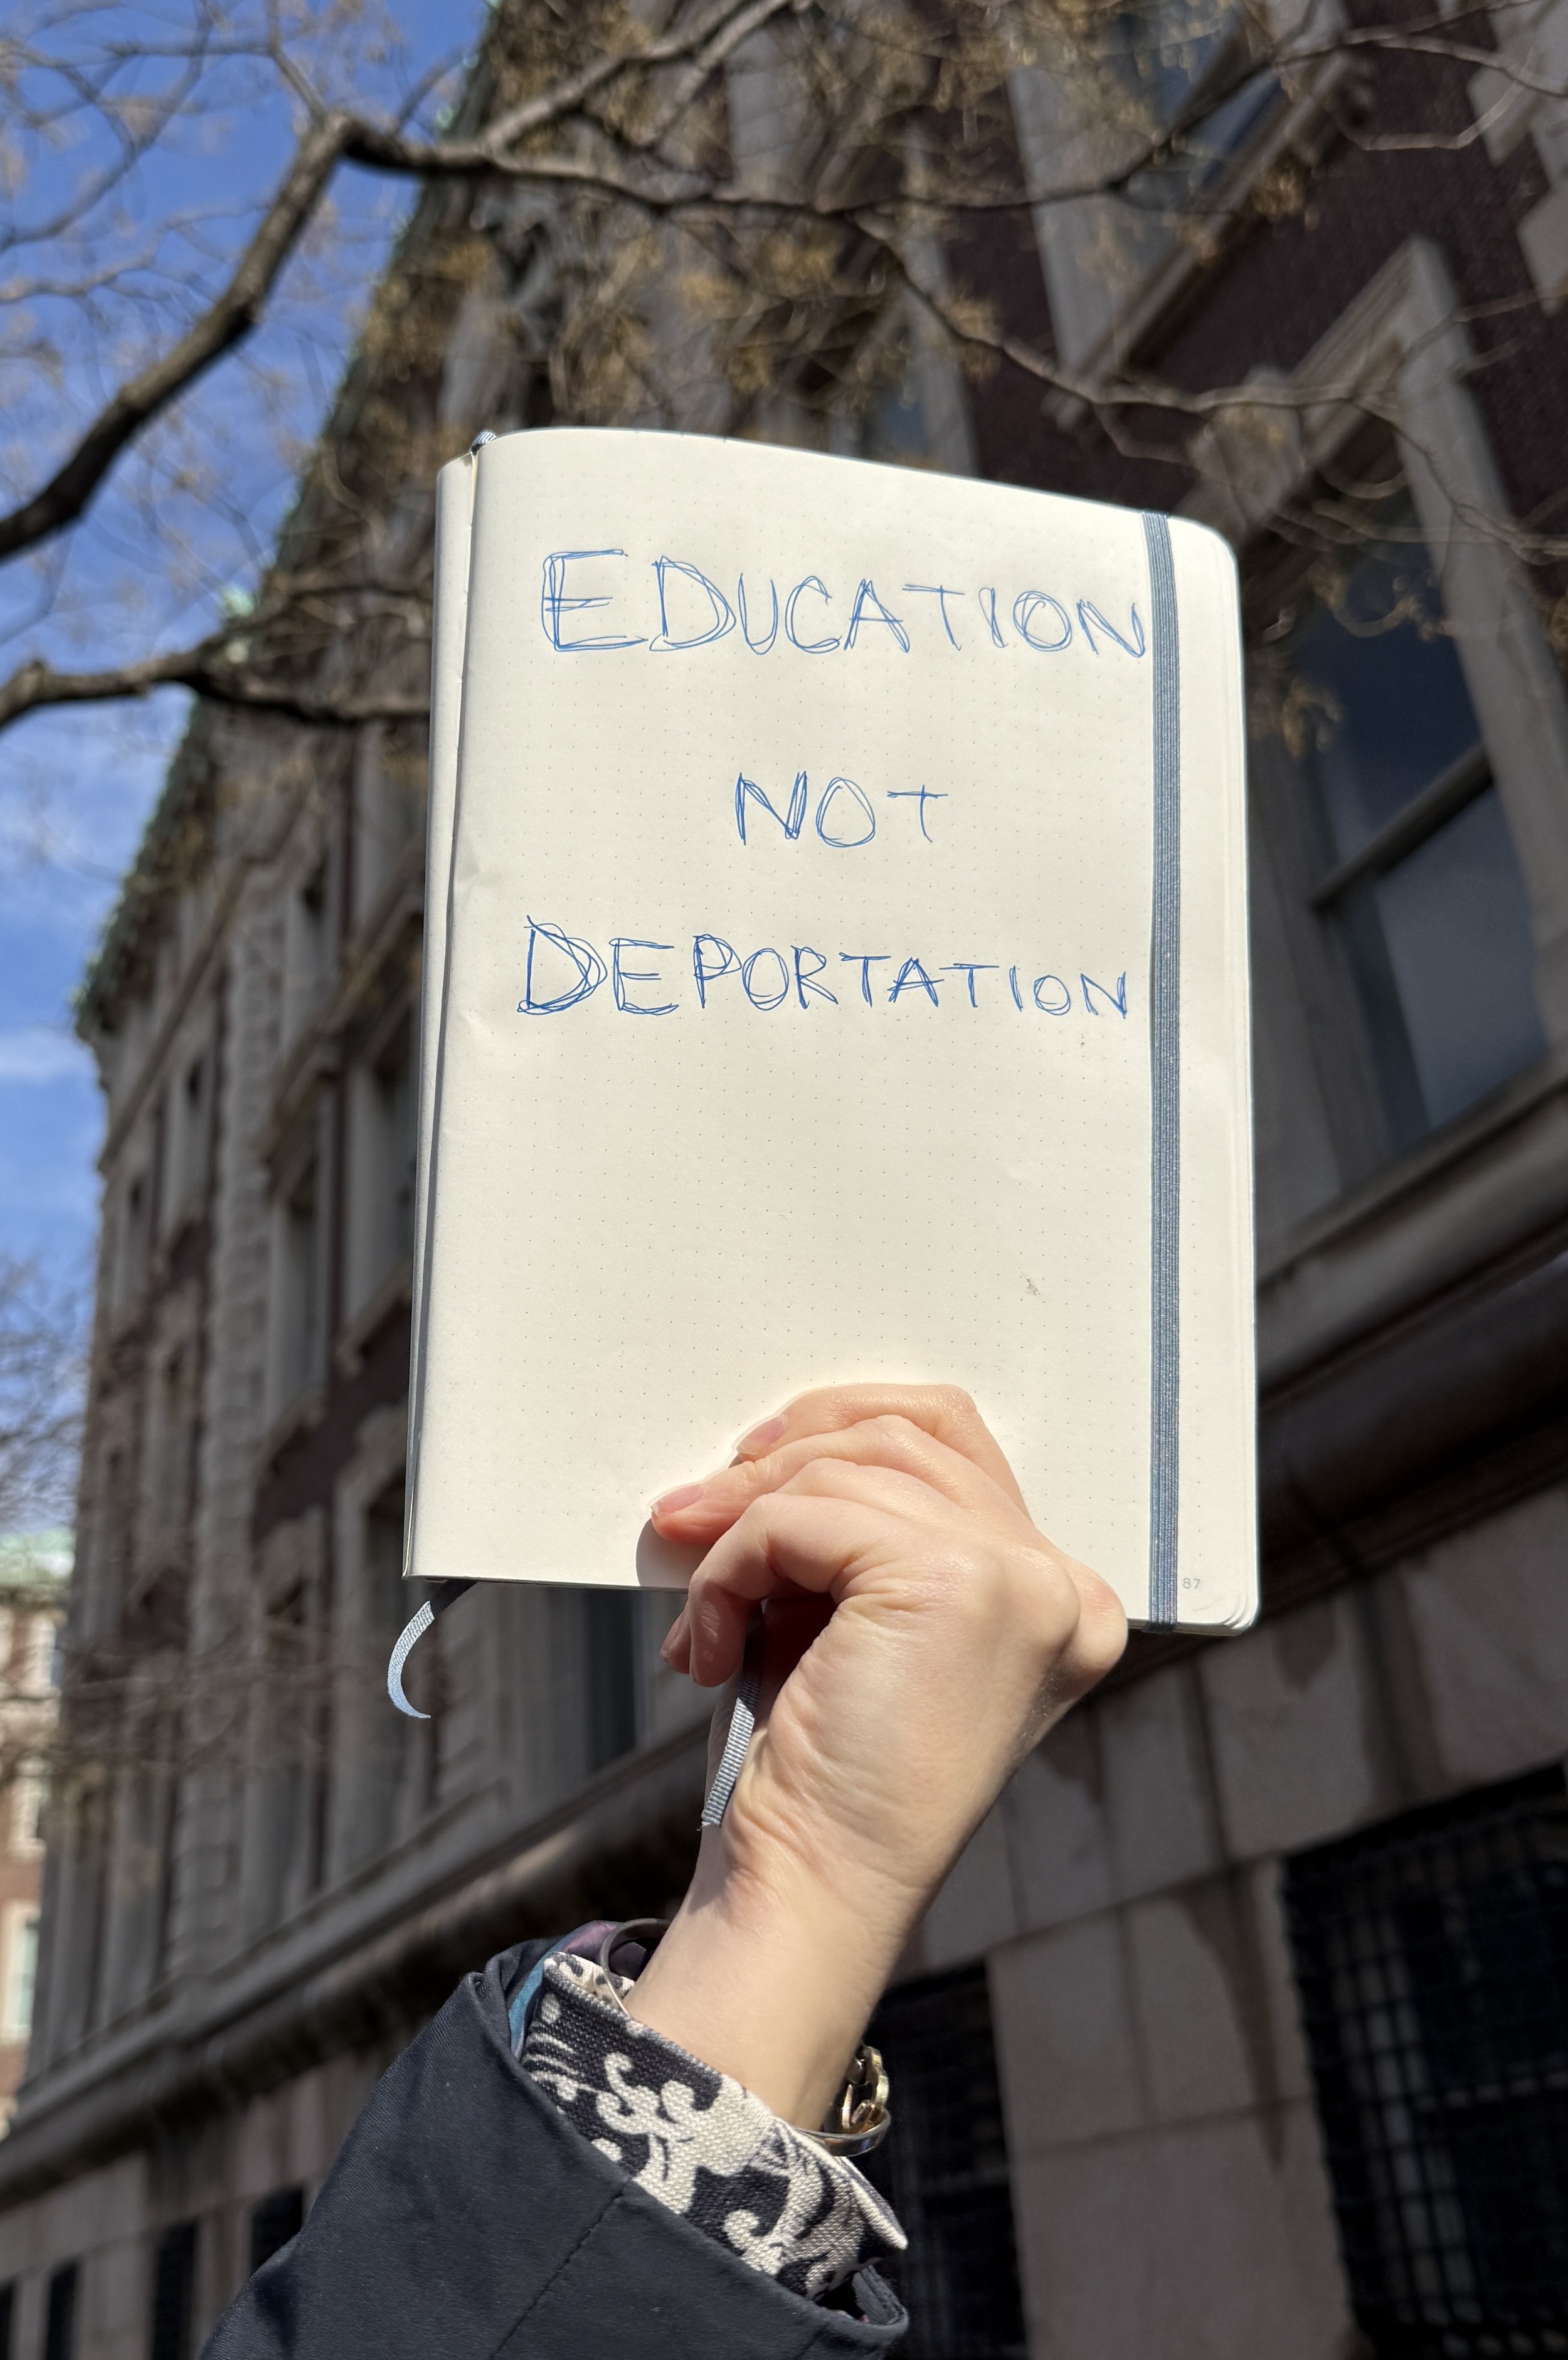 EDUCATION
NOT
DEPORTATION
87